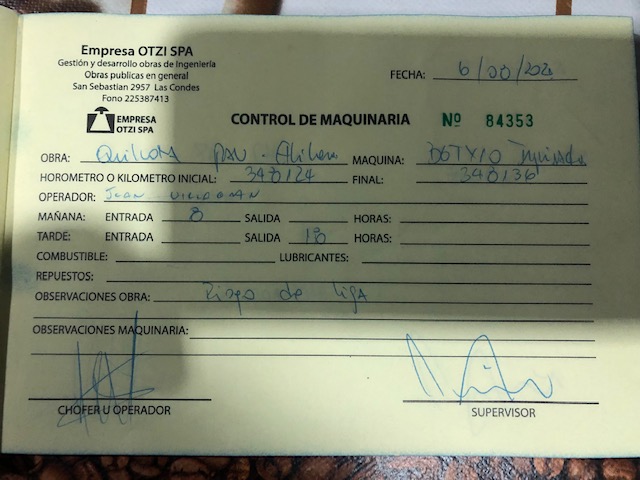 Empresa OTZI SPA
Gestión y desarrollo obras de Ingeniería
Obras publicas en general
San Sebastian 2957 Las Condes
Fono 225387413
FECHA: 6/
EMPRESA
OTZI SPA
CONTROL DE MAQUINARIA Nº 84353
OBRA: MAQUINA:
HOROMETRO O KILOMETRO INICIAL: 340124 FINAL: 340136
OPERADOR: Juan
MAÑANA: ENTRADA 8 SALIDA HORAS:
TARDE: ENTRADA SALIDA 18 HORAS:
COMBUSTIBLE: LUBRICANTES:
REPUESTOS:
OBSERVACIONES OBRA: Riego de liga
OBSERVACIONES MAQUINARIA:
CHOFER U OPERADOR SUPERVISOR